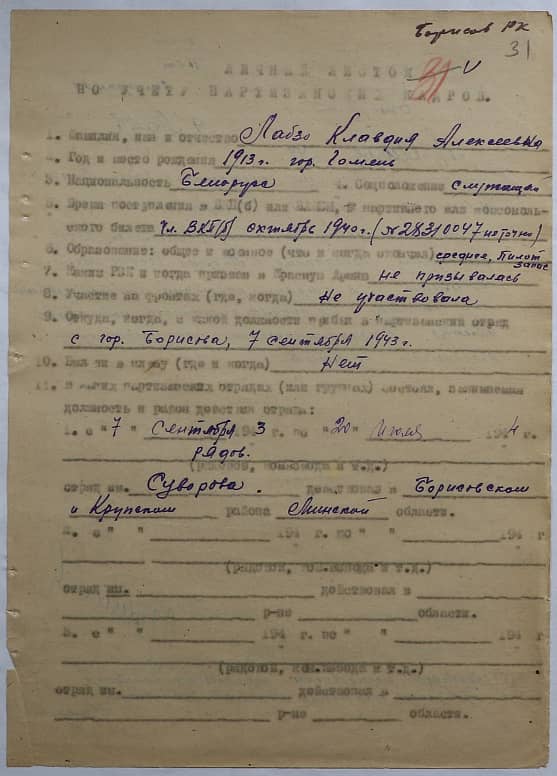 Борисов РК
31
31 V
ЛИЧНЫЙ ЛИСТОК
ПО УЧЕТУ ПАРТИЗАНСКИХ КАДРОВ.
1. Фамилия, имя и отчество Лабзо Клавдия Алексеевна
2. Год и место рождения 1913 г. гор. Гомель
3. Национальность Белорус 4. Соцположение служащая
5. Время поступления в ВКП(б) или ВЛКСМ, № партийного или комсомоль-
ского билета чл. ВКП(б) октябрь 1940 г. (№2831004
7 неточно)
6. Образование: общее и военное (что и когда окончил) среднее, пилот запас
7. Каким РВК и когда призван в Красную Армию не призывалась
8. Участие на фронтах (где, когда) Не участвовала
9. Откуда, когда, с какой должности прибыл в партизанский отряд
с гор. Борисова, 7 сентября 1943 г.
10. Был ли в плену (где и когда) Нет
11. В каких партизанских отрядах (или группах) состоял, занимаемая
должность и район действия отряда:
1. с "7" Сентября 1943 г. по "20" Июля 1944
рядов.
(рядовой, ком.взвода и т.д.)
отряд им. Суворова. действовал в Борисовском
и Крупском района Минской области.
2. с " " 194 г. по " " 194 г.
(рядовой, ком.взвода и т.д.)
отряд им. действовал в
р-не области.
3. с " " 194 г. по " " 194 г
(рядовой, ком.взвода и т.д.)
отряд им. действовал в
р-не области.